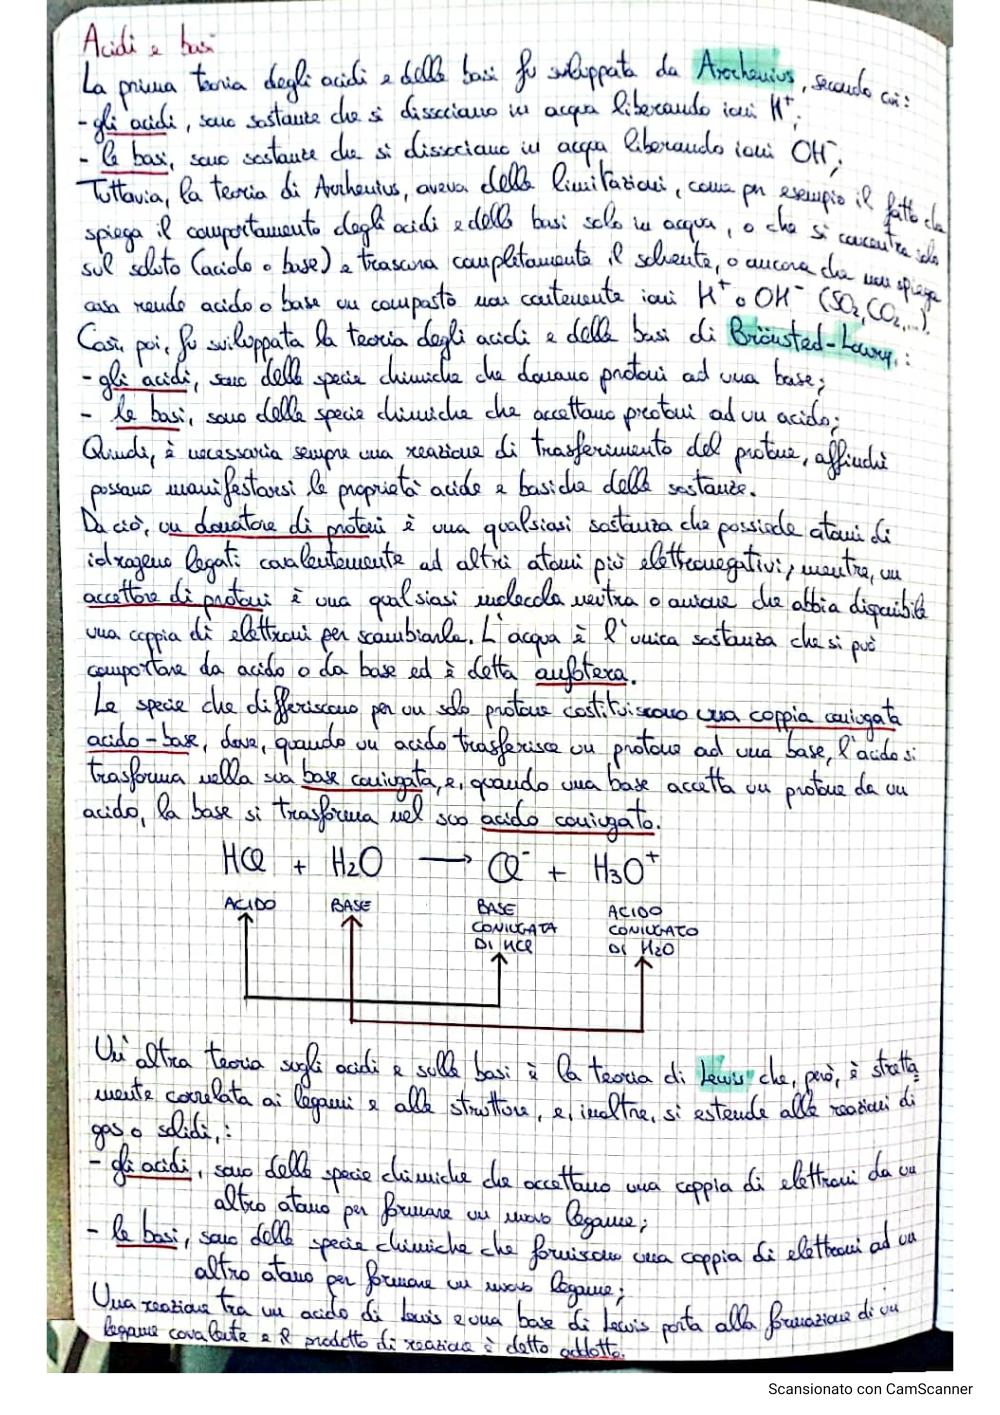 Acidi e basi
La prima teoria degli acidi e delle basi fu sviluppata da Arrhenius, secondo cui:
- gli acidi, sono sostanze che si dissociano in acqua liberando ioni H⁺;
- le basi, sono sostanze che si dissociano in acqua liberando ioni OH⁻;
Tuttavia, la teoria di Arrhenius, aveva delle limitazioni, come per esempio il fatto che
spiega il comportamento degli acidi e delle basi solo in acqua, o che si concentra solo
sul soluto (acido o base) e trascura completamente il solvente, o ancora che non spiega
cosa rende acido o base un composto non contenente ioni H⁺ o OH⁻ (SO₂, CO₂, ...).
Così, poi, fu sviluppata la teoria degli acidi e delle basi di Brönsted-Lowry,:
- gli acidi, sono delle specie chimiche che donano protoni ad una base;
- le basi, sono delle specie chimiche che accettano protoni ad un acido;
Quindi, è necessaria sempre una reazione di trasferimento del protone, affinché
possano manifestarsi le proprietà acide e basiche delle sostanze.
Da ciò, un donatore di protoni è una qualsiasi sostanza che possiede atomi di
idrogeno legati covalentemente ad altri atomi più elettronegativi, mentre, un
accettore di protoni è una qualsiasi molecola neutra o anione che abbia disponibile
una coppia di elettroni per scambiarle. L'acqua è l'unica sostanza che si può
comportare da acido o da base ed è detta anfotera.
Le specie che differiscono per un solo protone costituiscono una coppia coniugata
acido-base, dove, quando un acido trasferisce un protone ad una base, l'acido si
trasforma nella sua base coniugata, e, quando una base accetta un protone da un
acido, la base si trasforma nel suo acido coniugato.
HCl + H₂O ⟶ Cl⁻ + H₃O⁺
ACIDO BASE BASE CONIUGATA DI HCl ACIDO CONIUGATO DI H₂O
Un'altra teoria sugli acidi e sulle basi è la teoria di Lewis che, però, è stretta
mente correlata ai legami e alle strutture, e, inoltre, si estende alle reazioni di
gas o solidi,:
- gli acidi, sono delle specie chimiche che accettano una coppia di elettroni da un
altro atomo per formare un nuovo legame;
- le basi, sono delle specie chimiche che forniscono una coppia di elettroni ad un
altro atomo per formare un nuovo legame;
Una reazione tra un acido di Lewis e una base di Lewis porta alla formazione di un
legame covalente e il prodotto di reazione è detto addotto.
Scansionato con CamScanner